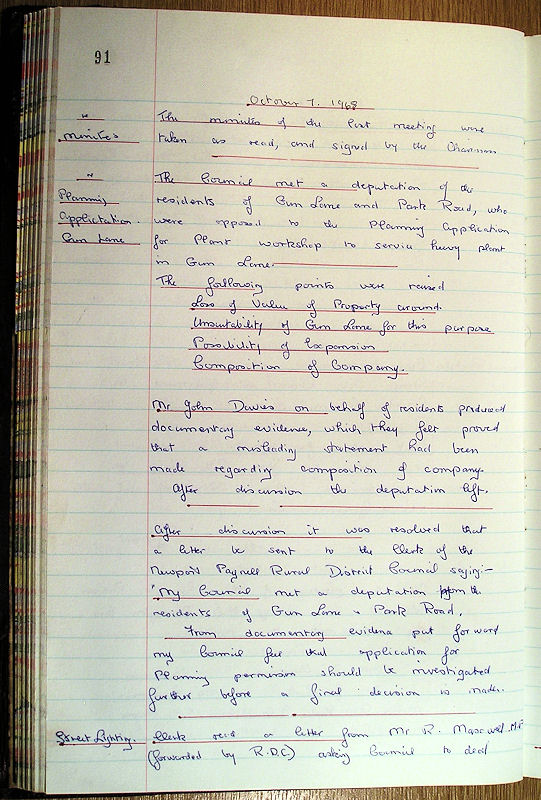 91
October 7. 1968
Minutes
The minutes of the last meeting were
taken as read, and signed by the Chairman
Planning
Application
Gun Lane
The Council met a deputation of the
residents of Gun Lane and Park Road, who
were opposed to the Planning Application
for Plant workshop to service heavy plant
in Gun Lane.
The following points were raised
Loss of Value of Property around.
Unsuitability of Gun Lane for this purpose
Possibility of Expansion
Composition of Company.
Mr John Davies on behalf of residents produced
documentary evidence, which they felt proved
that a misleading statement had been
made regarding composition of company.
After discussion the deputation left.
After discussion it was resolved that
a letter be sent to the Clerk of the
Newport Pagnell Rural District Council saying:-
"My Council met a deputation from the
residents of Gun Lane & Park Road.
From documentary evidence put forward
my Council feel that application for
Planning permission should be investigated
further before a final decision is made.
Street Lighting.
Clerk read a letter from Mr R. Maxwell. M.P
(forwarded by R.D.C) asking Council to deal